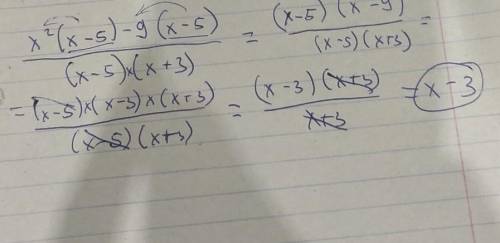 x²(x-5)-9(x-5) / (x-5)×(x+3) = (x-5)(x-9) / (x-5)(x+3) =
= (x-5)×(x-3)×(x+3) / (x-5)(x+3) = (x-3)(x+3) / x+3 = x-3